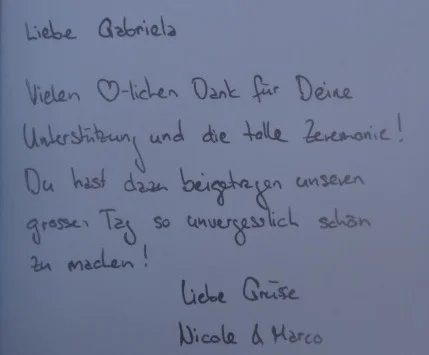 Liebe Gabriela
Vielen ♡-lichen Dank für Deine
Unterstützung und die tolle Zeremonie!
Du hast dazu beigetragen unseren
grossen Tag so unvergesslich schön
zu machen!
Liebe Grüsse
Nicole & Marco